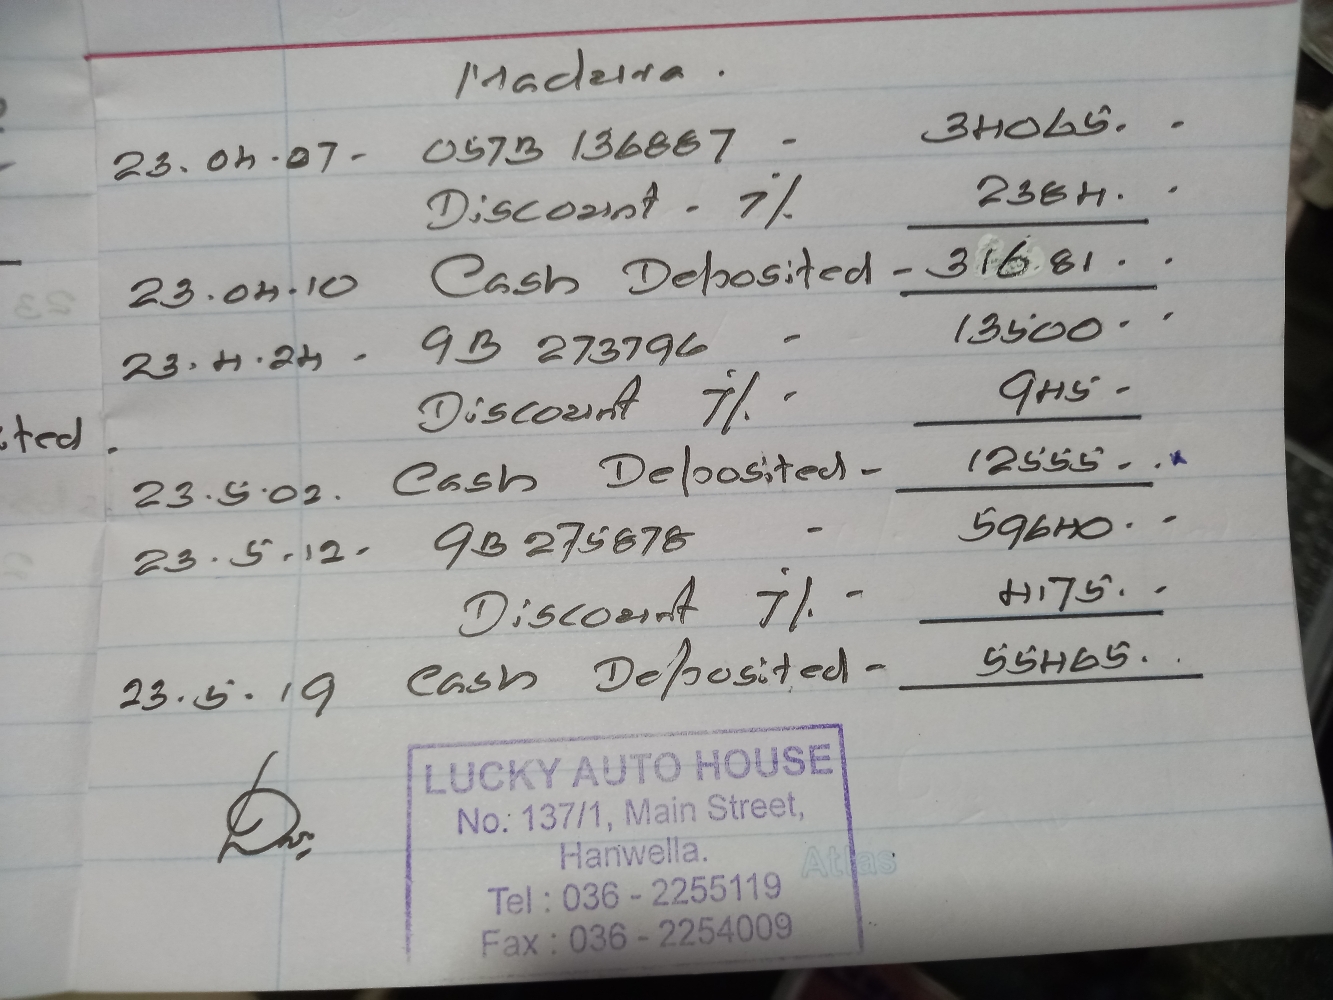 Madeira.
23.04.07- 057B 136887 - 34065. -
Discount - 7% 2384. -
23.04.10 Cash Deposited - 31681. -
23.4.24 - 9B 273796 - 13500. -
Discount 7% - 945 -
ited.
23.5.02. Cash Deposited - 12555 - .
23.5.12- 9B 275878 - 59640. -
Discount 7% - 4175. -
23.5.19 Cash Deposited - 55465. .
LUCKY AUTO HOUSE
No: 137/1, Main Street,
Hanwella.
Atlas
Tel : 036 - 2255119
Fax : 036 - 2254009